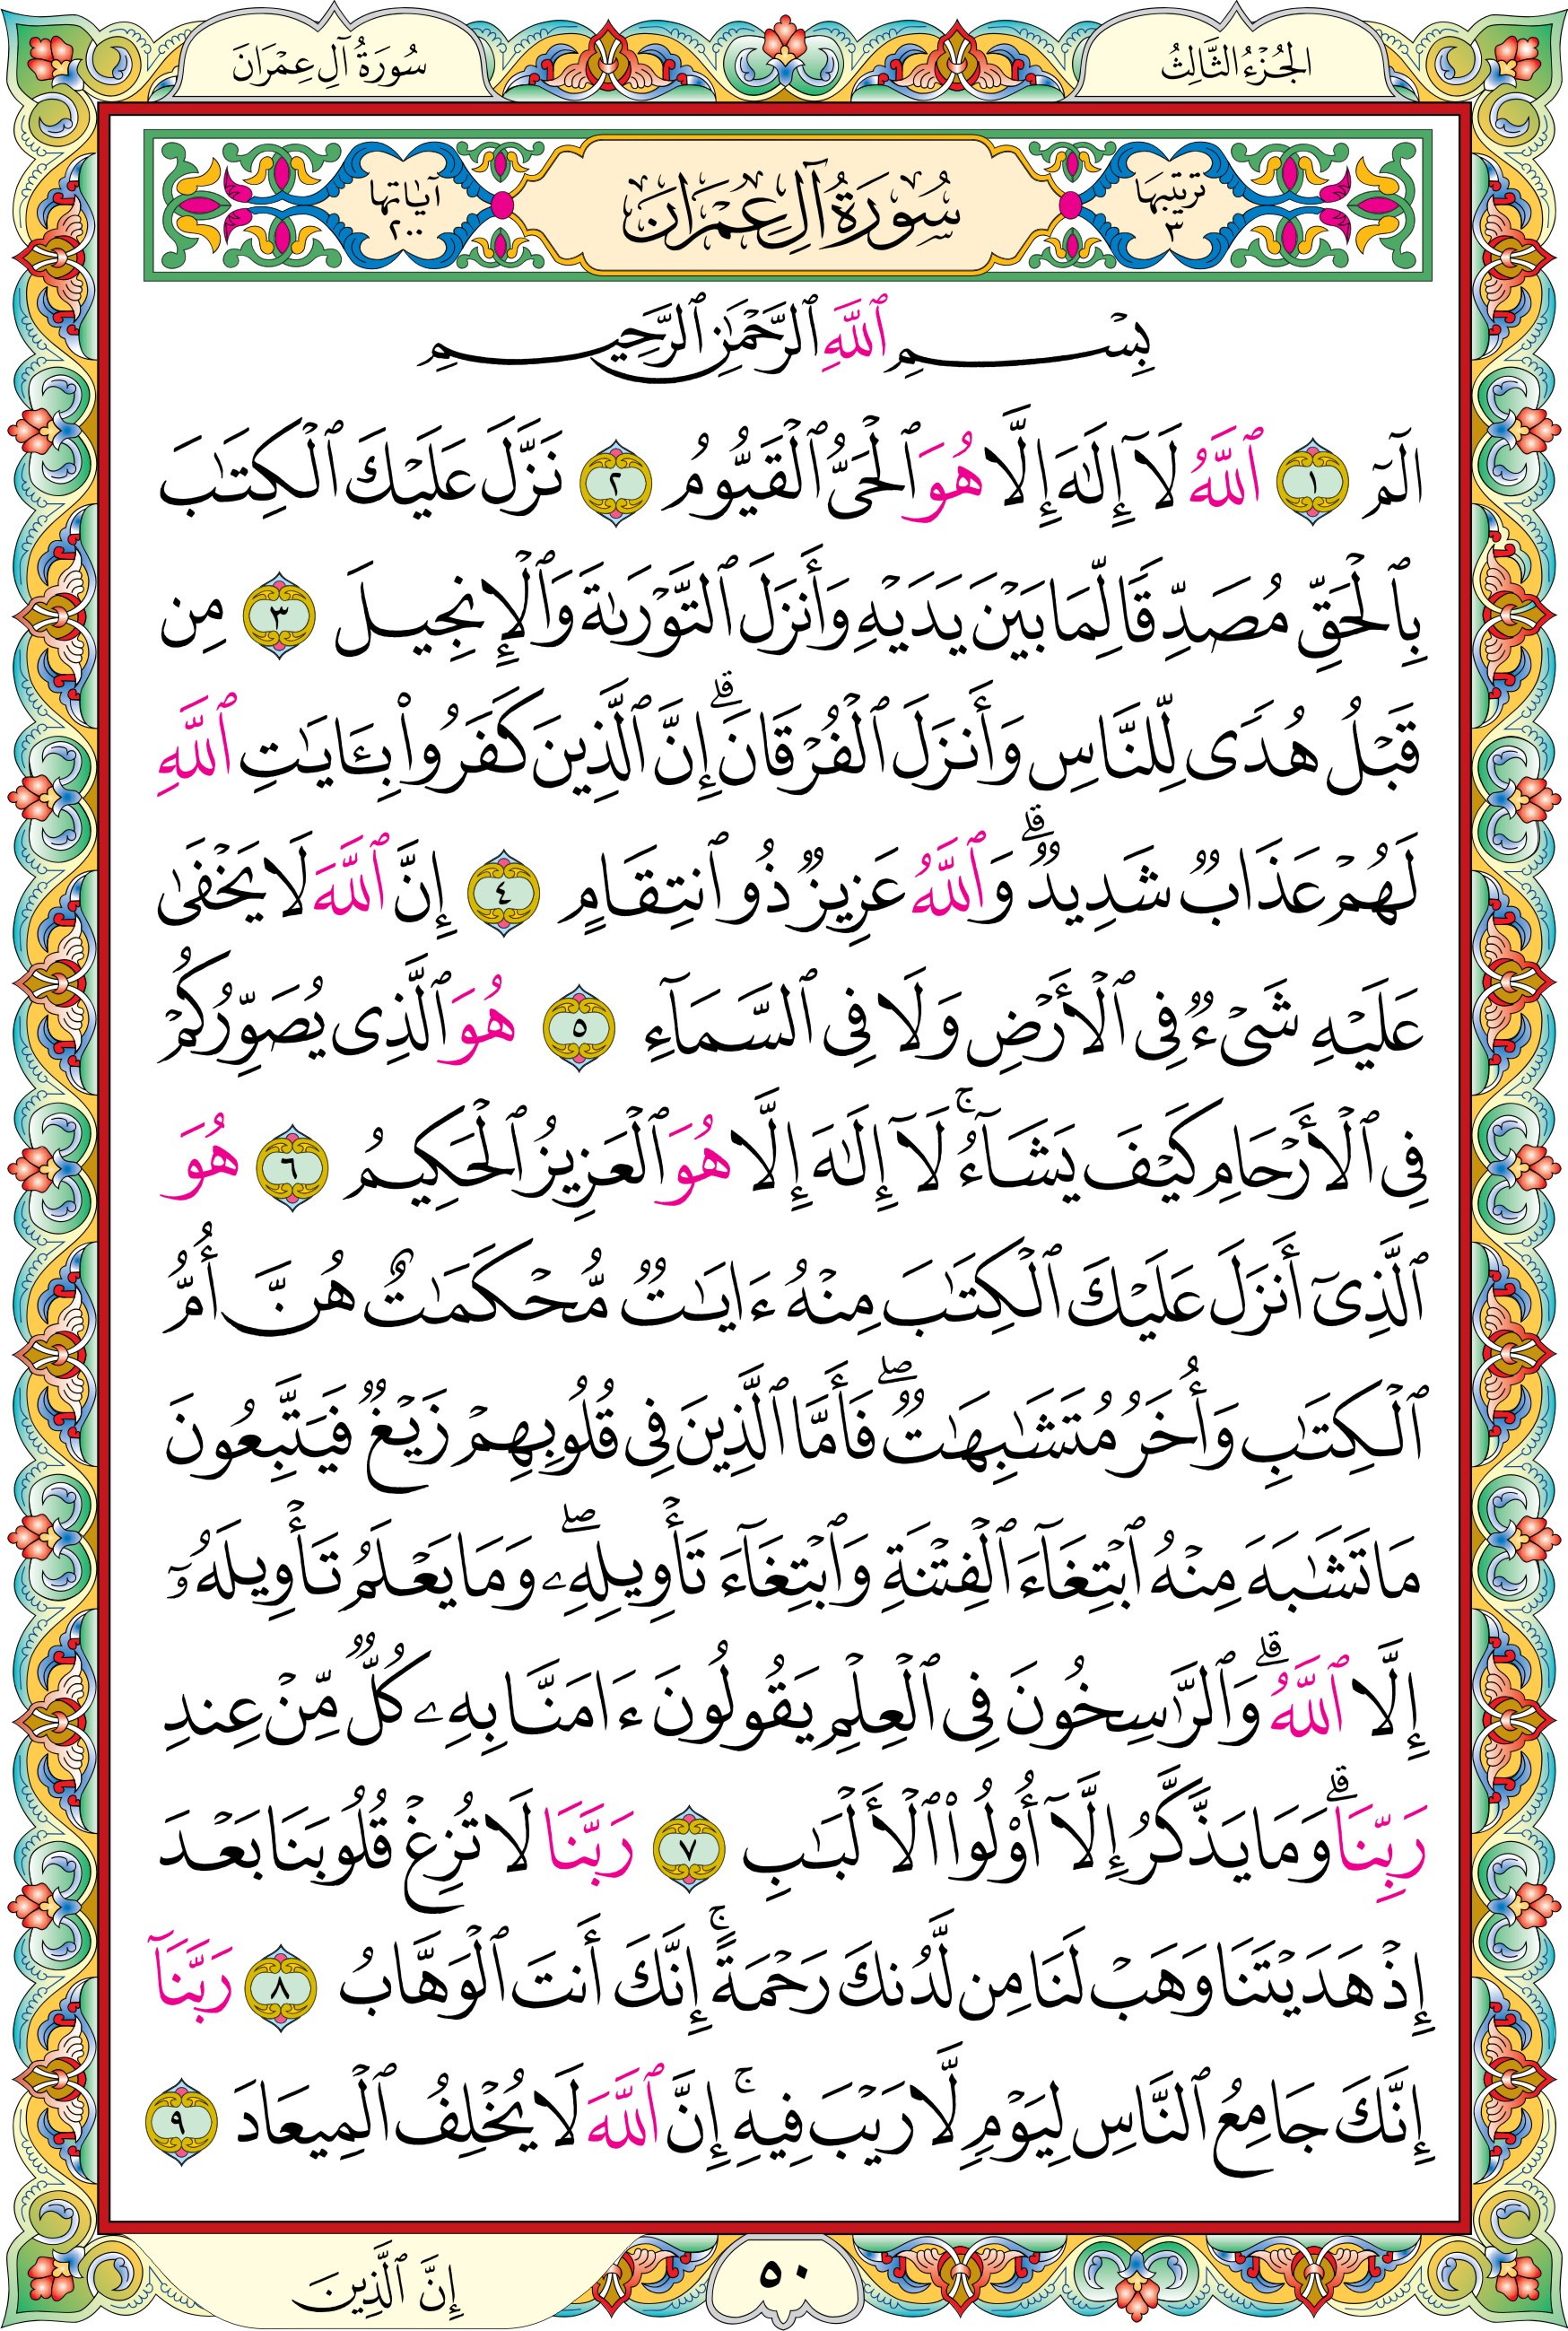 الجُزْءُ الثَّالِثُ
سُورَةُ آلِ عِمْرَانَ
ترتيبها
٣
سُورَةُ آلِ عِمْرَانَ
آياتها
٢٠٠
بِسْمِ ٱللَّهِ ٱلرَّحْمَٰنِ ٱلرَّحِيمِ
الٓمٓ ١ ٱللَّهُ لَآ إِلَٰهَ إِلَّا هُوَ ٱلْحَىُّ ٱلْقَيُّومُ ٢ نَزَّلَ عَلَيْكَ ٱلْكِتَٰبَ
بِٱلْحَقِّ مُصَدِّقًا لِّمَا بَيْنَ يَدَيْهِ وَأَنزَلَ ٱلتَّوْرَىٰةَ وَٱلْإِنجِيلَ ٣ مِن
قَبْلُ هُدًى لِّلنَّاسِ وَأَنزَلَ ٱلْفُرْقَانَ ۗ إِنَّ ٱلَّذِينَ كَفَرُوا۟ بِـَٔايَٰتِ ٱللَّهِ
لَهُمْ عَذَابٌ شَدِيدٌ ۗ وَٱللَّهُ عَزِيزٌ ذُو ٱنتِقَامٍ ٤ إِنَّ ٱللَّهَ لَا يَخْفَىٰ
عَلَيْهِ شَىْءٌ فِى ٱلْأَرْضِ وَلَا فِى ٱلسَّمَآءِ ٥ هُوَ ٱلَّذِى يُصَوِّرُكُمْ
فِى ٱلْأَرْحَامِ كَيْفَ يَشَآءُ ۚ لَآ إِلَٰهَ إِلَّا هُوَ ٱلْعَزِيزُ ٱلْحَكِيمُ ٦ هُوَ
ٱلَّذِىٓ أَنزَلَ عَلَيْكَ ٱلْكِتَٰبَ مِنْهُ ءَايَٰتٌ مُّحْكَمَٰتٌ هُنَّ أُمُّ
ٱلْكِتَٰبِ وَأُخَرُ مُتَشَٰبِهَٰتٌ ۖ فَأَمَّا ٱلَّذِينَ فِى قُلُوبِهِمْ زَيْغٌ فَيَتَّبِعُونَ
مَا تَشَٰبَهَ مِنْهُ ٱبْتِغَآءَ ٱلْفِتْنَةِ وَٱبْتِغَآءَ تَأْوِيلِهِۦ ۖ وَمَا يَعْلَمُ تَأْوِيلَهُۥٓ
إِلَّا ٱللَّهُ ۗ وَٱلرَّٰسِخُونَ فِى ٱلْعِلْمِ يَقُولُونَ ءَامَنَّا بِهِۦ كُلٌّ مِّنْ عِندِ
رَبِّنَا ۗ وَمَا يَذَّكَّرُ إِلَّآ أُو۟لُوا۟ ٱلْأَلْبَٰبِ ٧ رَبَّنَا لَا تُزِغْ قُلُوبَنَا بَعْدَ
إِذْ هَدَيْتَنَا وَهَبْ لَنَا مِن لَّدُنكَ رَحْمَةً ۚ إِنَّكَ أَنتَ ٱلْوَهَّابُ ٨ رَبَّنَآ
إِنَّكَ جَامِعُ ٱلنَّاسِ لِيَوْمٍ لَّا رَيْبَ فِيهِ ۚ إِنَّ ٱللَّهَ لَا يُخْلِفُ ٱلْمِيعَادَ ٩
٥٠
إِنَّ ٱلَّذِينَ